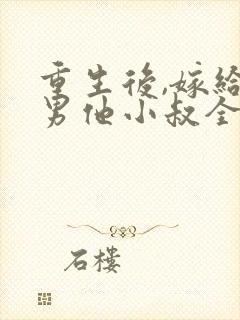 重生後,嫁給
男他小叔全
石樓